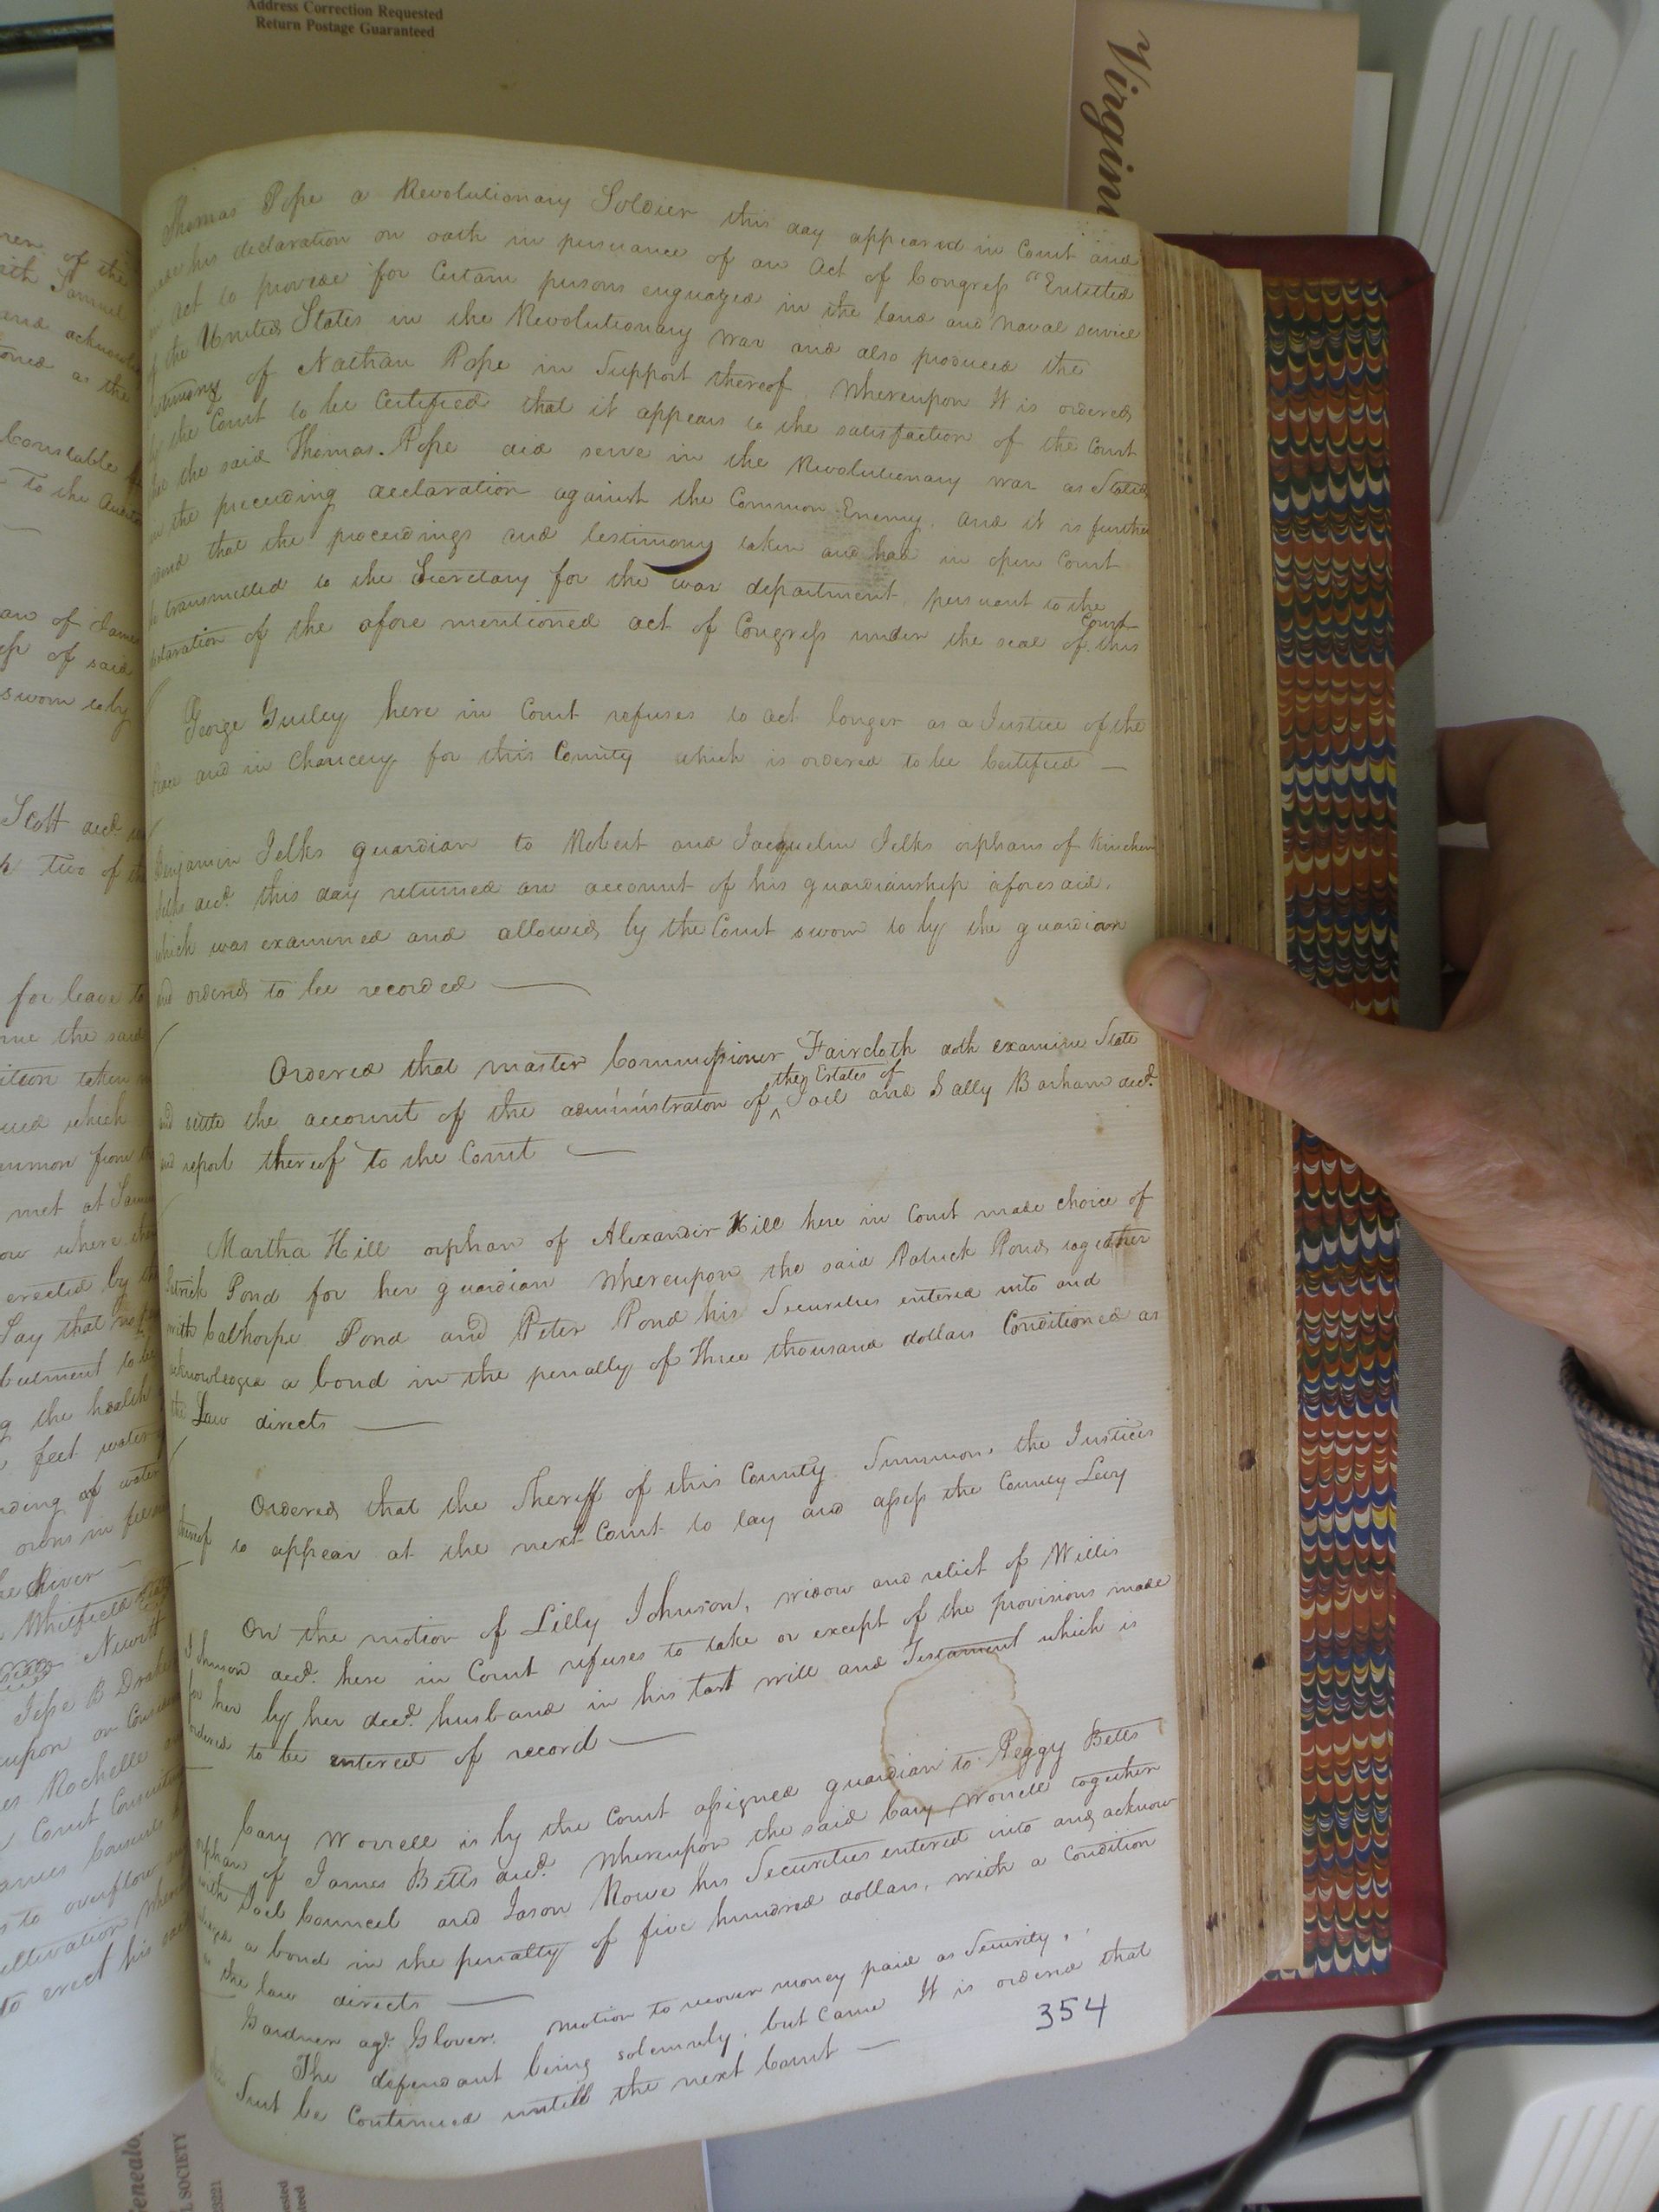 Address Correction Requested
Return Postage Guaranteed
Virgin
Thomas Pope a Revolutionary Soldier this day appeared in Court and
made his declaration on oath in pursuance of an Act of Congress "Entitled
an act to provide for Certain persons enguaged in the land and naval service
of the United States in the Revolutionary war and also produced the
testimony of Nathan Pope in Support thereof. Whereupon It is ordered
by the Court to be Certified that it appears to the satisfaction of the Court
that the said Thomas Pope did serve in the Revolutionary war as Stated
in the preceeding declaration against the Common Enemy. And it is further
that the proceedings and testimony taken and had in open Court
be transmitted to the Secretary for the war department, persuant to the
of the afore mentioned act of Congress under the seal of this Court
George Gurley here in Court refuses to act longer as a Justice of the
Peace and in Chancery for this County which is ordered to be Certified —
Benjamin Jelks guardian to Robert and Jacquelin Jelks orphans of Kinchen
Jelks decd. this day returned an account of his guardianship aforesaid,
which was examined and allowed, by the Court sworn to by the guardian
and ordered to be recorded —
Ordered that master Commissioner Faircloth doth examine State
and settle the account of the administration of the Estates of Joel and Sally Barham decd.
and report thereof to the Court —
Martha Hill orphan of Alexander Hill here in Court made choice of
Patrick Pond for her guardian Whereupon the said Patrick Pond, together
with Calthorpe Pond and Peter Pond his Securities entered into and
acknowledged a bond in the penalty of Three thousand dollars Conditioned as
the Law directs —
Ordered that the Sheriff of this County Summon the Justices
thereof to appear at the next Court to lay and assess the County Levy
On the motion of Lilly Johnson, widow and relict of Willis
Johnson decd. here in Court refuses to take or except of the provisions made
for her by her decd. husband in his last will and Testament which is
ordered to be entered of record —
Cary Worrell is by the Court assigned guardian to Peggy Betts
orphan of James Betts decd. Whereupon the said Cary Worrell together
with Joel Councel and Jason Rowe his Securities entered into and acknow
ledged a bond in the penalty of five hundred dollars, with a Condition
as the law directs —
Gardner agt. Glover. Motion to recover money paid as Security.
The defendant being solemnly, but Came It is ordered that
Suit be Continued untill the next Court —
354
of the
Samuel
and acknow
as the
Constable
To the
of James
of said
sworn to by
Scott decd.
two of
for leave to
the said
taken
which
from
met at
where
erected by
Say that
the health
feet water
of water
River —
Whitfield
Newitt
Jesse B Drake
upon
Rochelle
Court
to overflow
to erect his
SOCIETY
23221